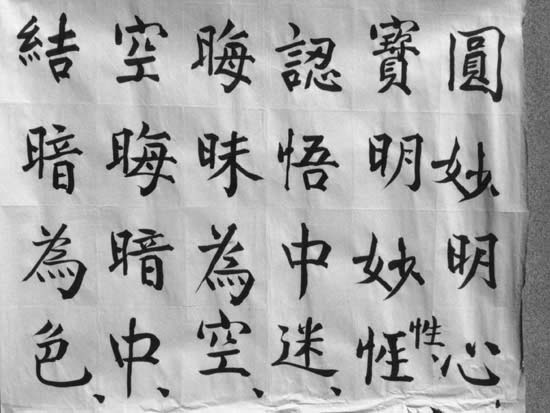 圓妙明心、
寶明妙性、
認悟中迷、
晦昧為空、
空晦暗中、
結暗為色、